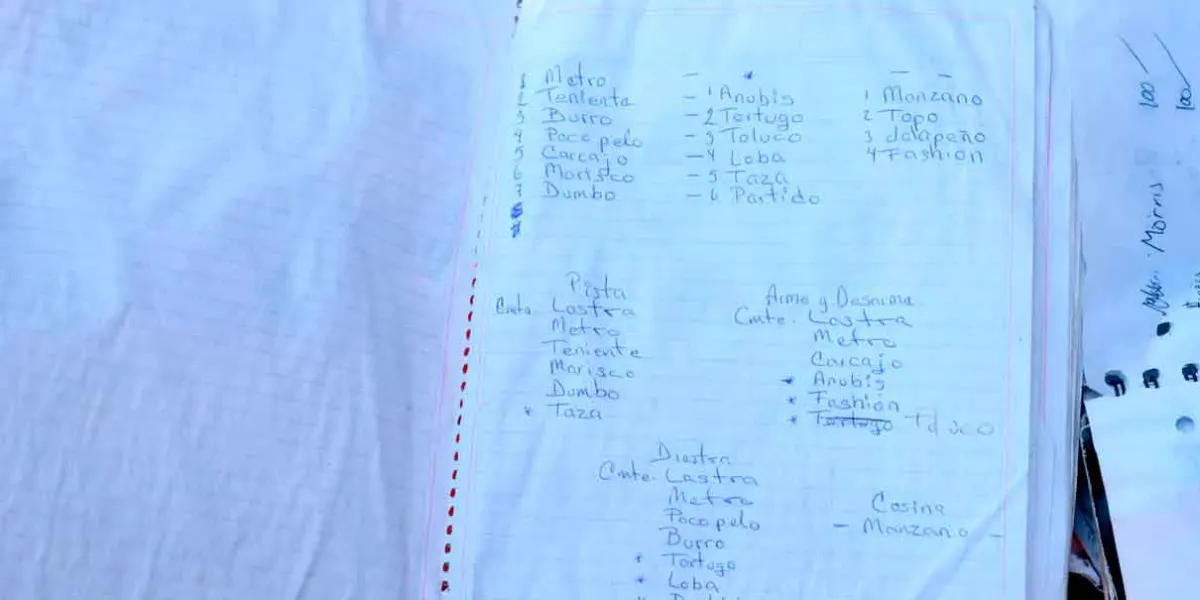 1 Metro
2 Teniente
3 Burro
4 Poco pelo
5 Carcajo
6 Marisco
7 Dumbo
8
- *
- 1 Anubis
- 2 Tortugo
- 3 Toluco
- 4 Loba
- 5 Taza
- 6 Partido
- -
1 Manzano
2 Topo
3 Jalapeño
4 Fashion
Pista
Cmte. Lastra
Metro
Teniente
Marisco
Dumbo
* Taza
Arme y Desarme
Cmte. Lastra
Metro
Carcajo
* Anubis
* Fashion
* Tortugo Toluco
Diestra
Cmte. Lastra
Metro
Poco pelo
Burro
* Tortugo
* Loba
Cosina
- Manzano -
100
100
Morris